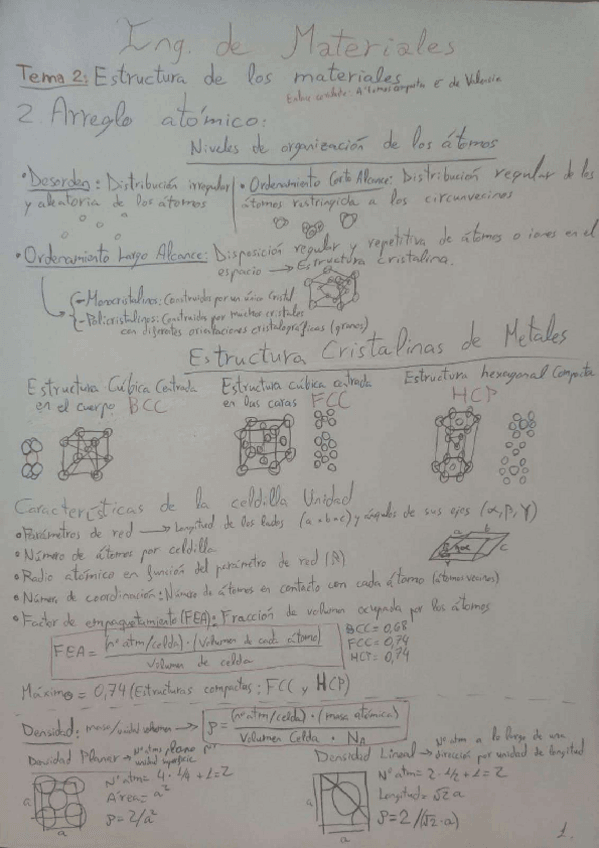 Ing. de Materiales
Tema 2: Estructura de los materiales
Enlace covalente: Átomos comparten e⁻ de Valencia
2. Arreglo atómico:
Niveles de organización de los átomos
• Desorden: Distribución irregular y aleatoria de los átomos
• Ordenamiento Corto Alcance: Distribución regular de los átomos restringida a los circunvecinos
• Ordenamiento Largo Alcance: Disposición regular y repetitiva de átomos o iones en el
espacio → Estructura cristalina.
- Monocristalinos: Construida por un único cristal
- Policristalinos: Construida por muchos cristales
con diferentes orientaciones cristalográficas (granos)
Estructura Cristalinas de Metales
Estructura Cúbica Centrada en el cuerpo BCC
Estructura cúbica centrada en las caras FCC
Estructura hexagonal Compacta HCP
Características de la celdilla Unidad
• Parámetros de red → Longitud de los lados (a · b · c) y ángulos de sus ejes (α, β, γ)
• Número de átomos por celdilla
• Radio atómico en función del parámetro de red (R)
• Número de coordinación: Número de átomos en contacto con cada átomo (átomos vecinos)
• Factor de empaquetamiento (FEA): Fracción de volumen ocupada por los átomos
FEA = (nº atm/celda) · (Volumen de cada átomo) / Volumen de celda
BCC = 0,68
FCC = 0,74
HCP = 0,74
Máximo = 0,74 (Estructuras compactas: FCC y HCP)
Densidad: masa/unidad volumen → ρ = (nº atm/celda) · (masa atómica) / Volumen Celda · N_A
Densidad Planar → Nº atms plano por unidad superficie
Nº atm = 4 · 1/4 + 1 = 2
Área = a²
ρ = 2/a²
a
a
Densidad Lineal → Nº atm a lo largo de una dirección por unidad de longitud
Nº atm = 2 · 1/2 + 1 = 2
Longitud = √2 a
ρ = 2/(√2 · a)
a
a
1.